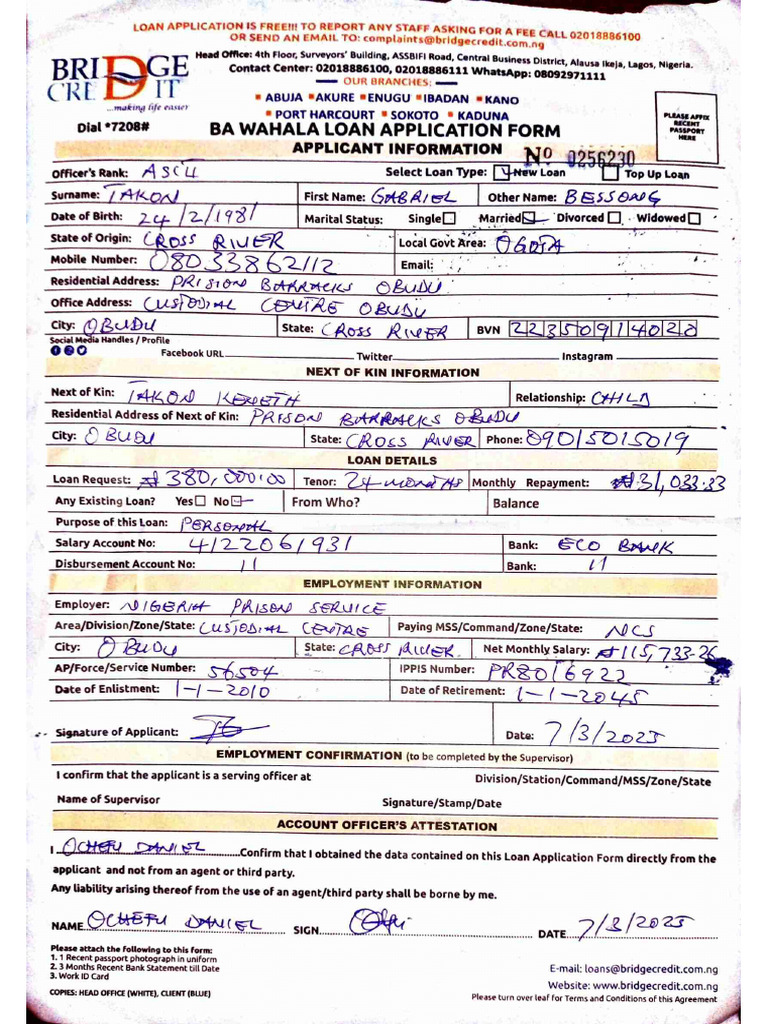 LOAN APPLICATION IS FREE!!! TO REPORT ANY STAFF ASKING FOR A FEE CALL 02018886100
OR SEND AN EMAIL TO: complaints@bridgecredit.com.ng
BRIDGE CREDIT
...making life easier
Head Office: 4th Floor, Surveyors' Building, ASSBIFI Road, Central Business District, Alausa Ikeja, Lagos, Nigeria.
Contact Center: 02018886100, 02018886111 WhatsApp: 08092971111
OUR BRANCHES:
ABUJA AKURE ENUGU IBADAN KANO
PORT HARCOURT SOKOTO KADUNA
Dial *7208#
PLEASE AFFIX RECENT PASSPORT HERE
BA WAHALA LOAN APPLICATION FORM
APPLICANT INFORMATION No 0256230
Officer's Rank: ASCII Select Loan Type: New Loan Top Up Loan
Surname: TAKON First Name: GABRIEL Other Name: BESSONG
Date of Birth: 24/2/1981 Marital Status: Single Married Divorced Widowed
State of Origin: CROSS RIVER Local Govt Area: OGOJA
Mobile Number: 08033862112 Email:
Residential Address: PRISION BARRACKS OBUDU
Office Address: CUSTODIAL CENTRE OBUDU
City: OBUDU State: CROSS RIVER BVN 22350914020
Social Media Handles / Profile
Facebook URL Twitter Instagram
NEXT OF KIN INFORMATION
Next of Kin: TAKON KENETH Relationship: CHILD
Residential Address of Next of Kin: PRISON BARRACKS OBUDU
City: OBUDU State: CROSS RIVER Phone: 09015015019
LOAN DETAILS
Loan Request: ₦380,000:00 Tenor: 24-MONTHS Monthly Repayment: ₦31,033.33
Any Existing Loan? Yes No From Who? Balance
Purpose of this Loan: PERSONAL
Salary Account No: 4122061931 Bank: ECO BANK
Disbursement Account No: 11 Bank: 11
EMPLOYMENT INFORMATION
Employer: NIGERIA PRISON SERVICE
Area/Division/Zone/State: CUSTODIAL CENTRE Paying MSS/Command/Zone/State: NCS
City: OBUDU State: CROSS RIVER Net Monthly Salary: ₦115,733-26
AP/Force/Service Number: 56504 IPPIS Number: PR8016922
Date of Enlistment: 1-1-2010 Date of Retirement: 1-1-2045
Signature of Applicant: Date: 7/3/2025
EMPLOYMENT CONFIRMATION (to be completed by the Supervisor)
I confirm that the applicant is a serving officer at Division/Station/Command/MSS/Zone/State
Name of Supervisor Signature/Stamp/Date
ACCOUNT OFFICER'S ATTESTATION
I OCHEFU DANIEL Confirm that I obtained the data contained on this Loan Application Form directly from the
applicant and not from an agent or third party.
Any liability arising thereof from the use of an agent/third party shall be borne by me.
NAME OCHEFU DANIEL SIGN. DATE 7/3/2025
Please attach the following to this form:
1. 1 Recent passport photograph in uniform
2. 3 Months Recent Bank Statement till Date
3. Work ID Card
COPIES: HEAD OFFICE (WHITE), CLIENT (BLUE)
E-mail: loans@bridgecredit.com.ng
Website: www.bridgecredit.com.ng
Please turn over leaf for Terms and Conditions of this Agreement